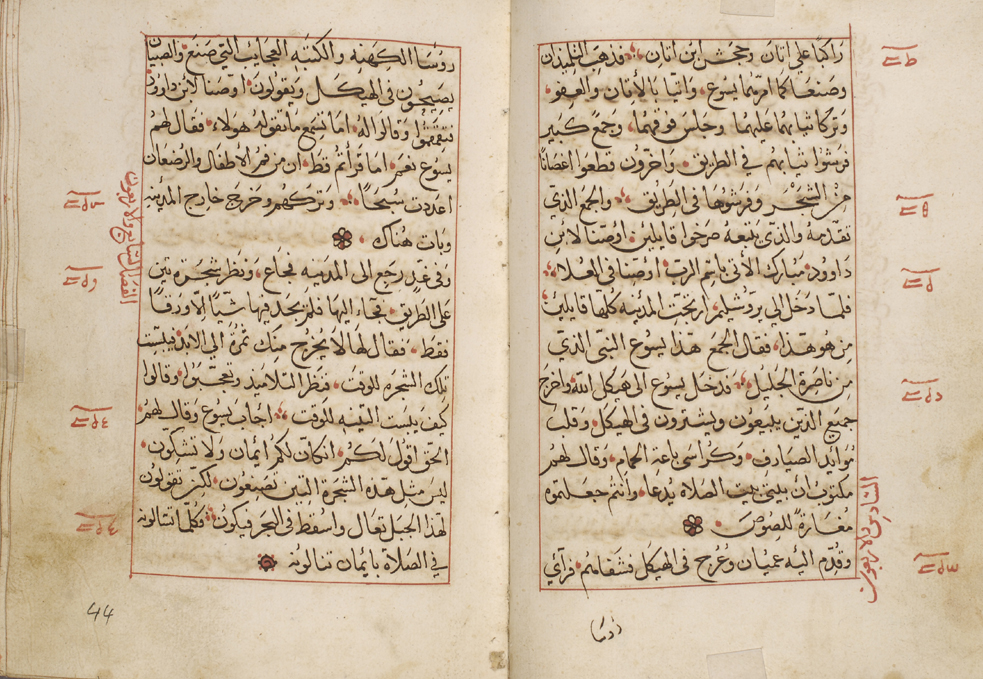 راكبًا على اتان وجحش ابن اتان فذهب التلميذان
وصنعا كما امرهما يسوع واتيا بالاتان والعفو
وتركا ثيابهما عليهما وجلس فوقهما وجمع كبير
فرشوا ثيابهم في الطريق واخرون قطعوا اغصانا
من الشجر وفرشوها في الطريق والجمع الذي
تقدمه والذي يتبعه صرخوا قايلين اوصنا لابن
داوود مبارك الاتى باسم الرب اوصنا في العلا
فلما دخل الي يروشليم ارتجت المدينه كلها قايلين
من هو هذا فقال الجمع هذا يسوع النبى الذي
من ناصرة الجليل فدخل يسوع الى هيكل الله واخرج
جميع الذين يبيعون ويشترون فى الهيكل وقلب
موايد الصيارف وكراسى باعة الحمام وقال لهم
مكتوب ان بيتى بيت الصلاه يدعا وانتم جعلتموه
مغارة للصوص
وقدم اليه عميان وعرج فى الهيكل فشفاهم فراي
السادس والاربعون
روسا
روسا الكهنه والكتبه العجايب التي صنع والصبيان
يصيحون في الهيكل ويقولون اوصنا لابن داوود
فتقمقموا وقالوا له اما تسمع ما يقوله هولاء فقال لهم
يسوع نعم اما قرأتم قط ان من فم الاطفال والرضعان
اعددت سبحًا وتركهم وخرج خارج المدينه
وبات هناك
وفي غد رجع الى المدينه فجاع ونظر شجرة تين
على الطريق فجاء اليها فلم يجد فيها شيًا الا ورقا
فقط فقال لها لا يخرج منك ثمرة الي الابد فيبست
تلك الشجره للوقت فنظر التلاميد وتعجبوا وقالوا
كيف يبست التينه للوقت اجاب يسوع وقال لهم
الحق اقول لكم ان كان لكم ايمان ولا تشكون
ليس مثل هذه الشجرة التين تصنعون لكن تقولون
لهذا الجبل تعال واسقط في البحر فيكون وكلما تسالونه
في الصلاة بايمان تنالونه
الفصل السابع والاربعون
44